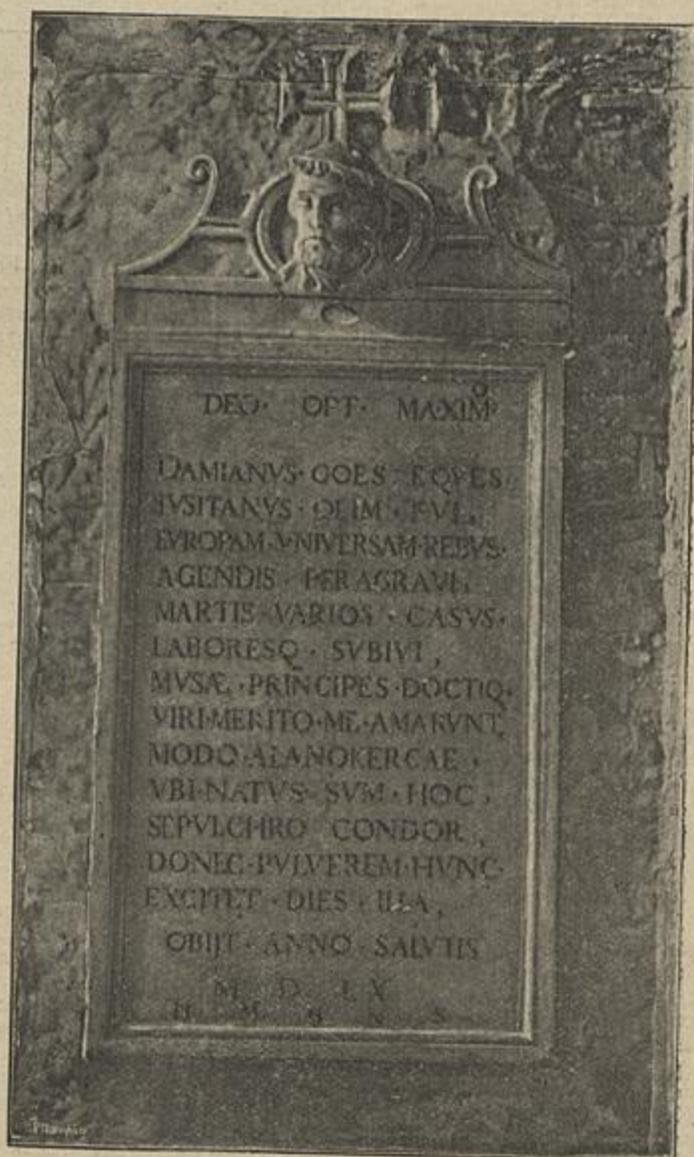 DEO · OPT · MAXIMº
DAMIANVS · GOES · EQVES
LVSITANVS · OLIM · FVI,
EVROPAM · VNIVERSAM · REBVS ·
AGENDIS · PERAGRAVI,
MARTIS · VARIOS · CASVS ·
LABORESQ · SVBIVI,
MVSÆ · PRINCIPES · DOCTIQ ·
VIRI · MERITO · ME · AMARVNT,
MODO · ALANOKERCAE ·
VBI · NATVS · SVM · HOC,
SEPVLCHRO CONDOR,
DONEC · PVLVEREM · HVNC ·
EXCITET · DIES · ILLA,
OBIJT · ANNO · SALVTIS
M D LX
H M H N S